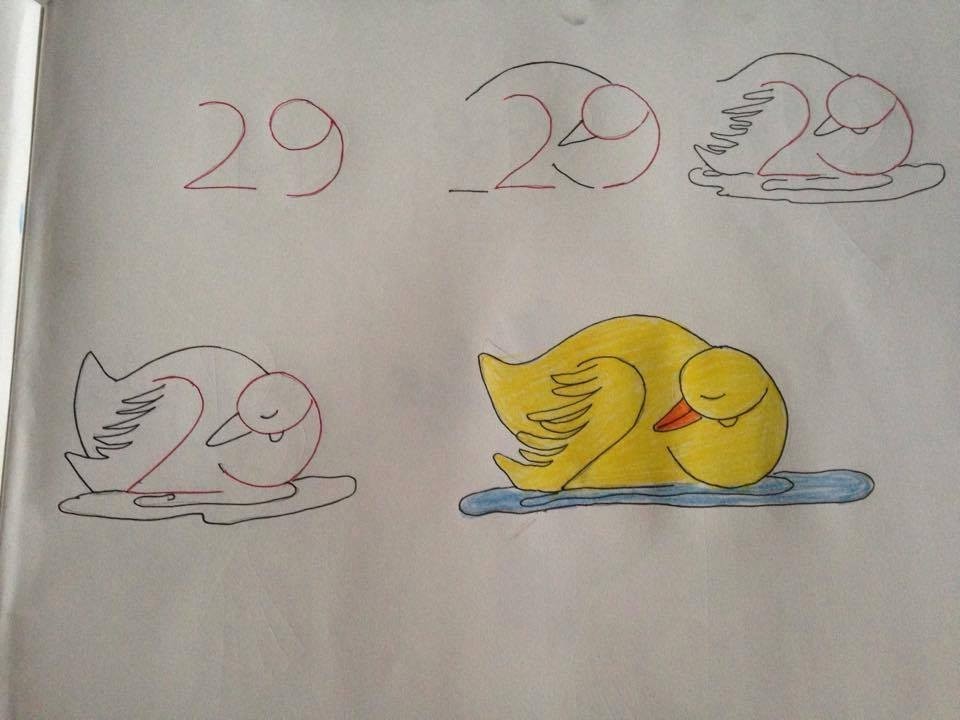 29
29
29
29